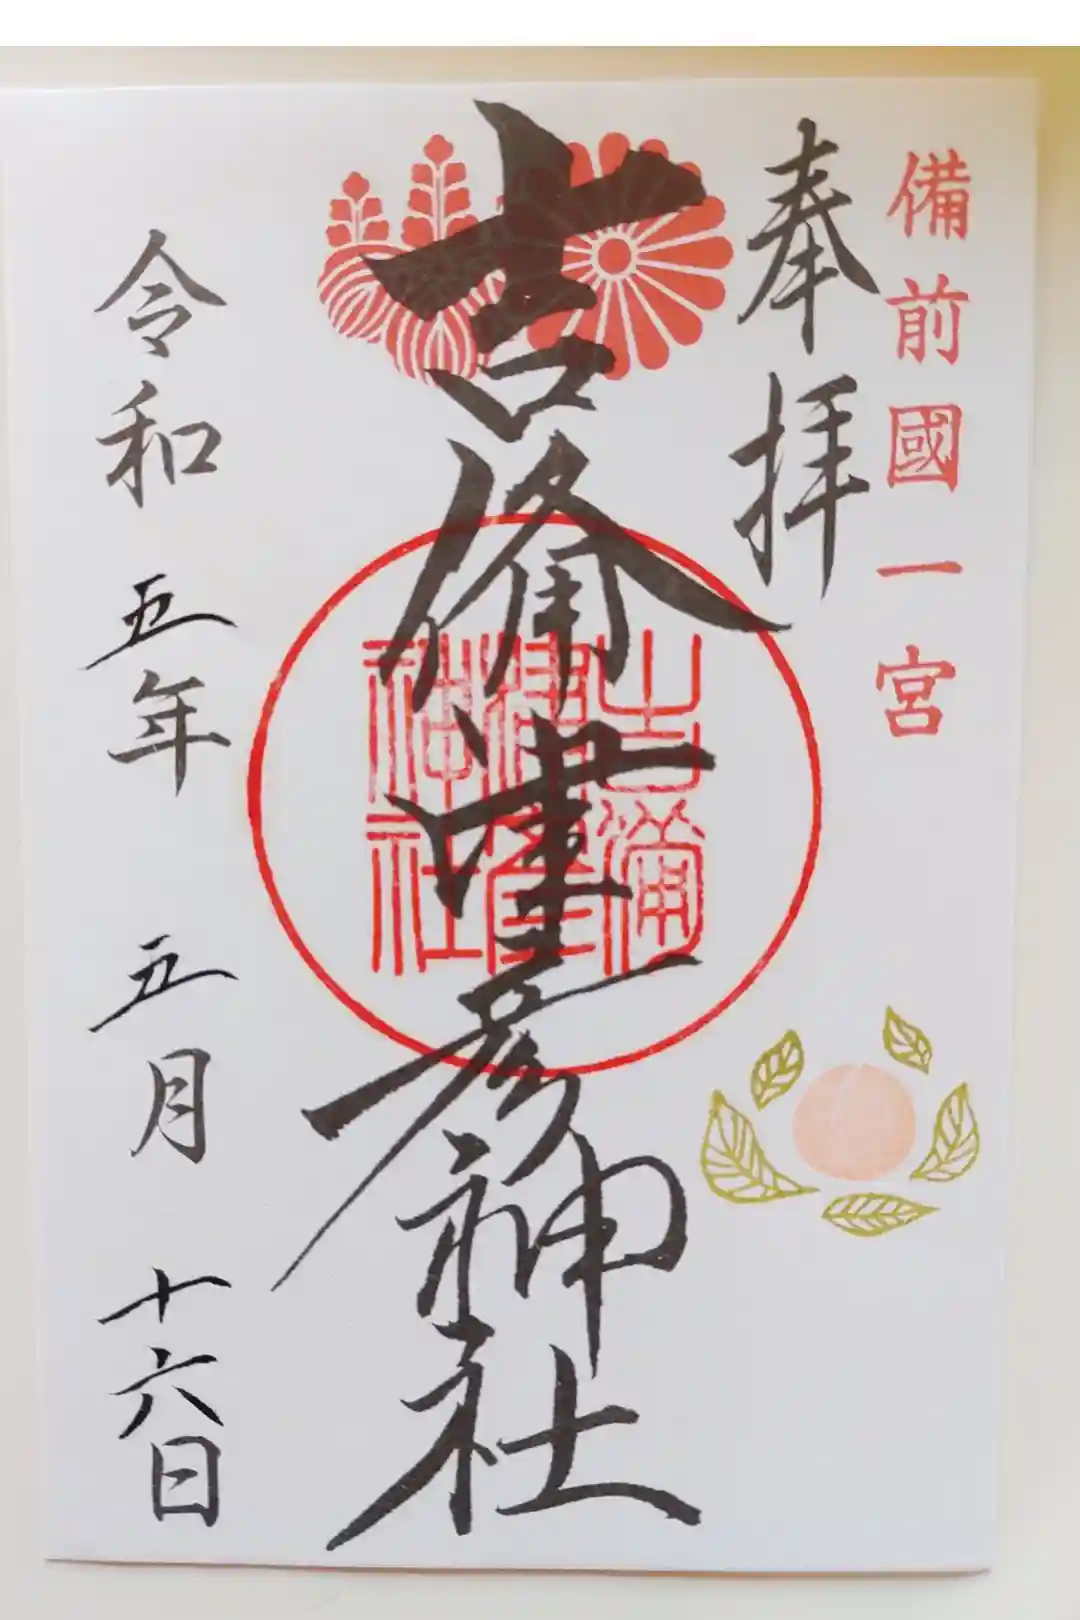 備前國一宮
奉拝
吉備津彦神社
吉備
津彦
神社
令和五年五月十六日